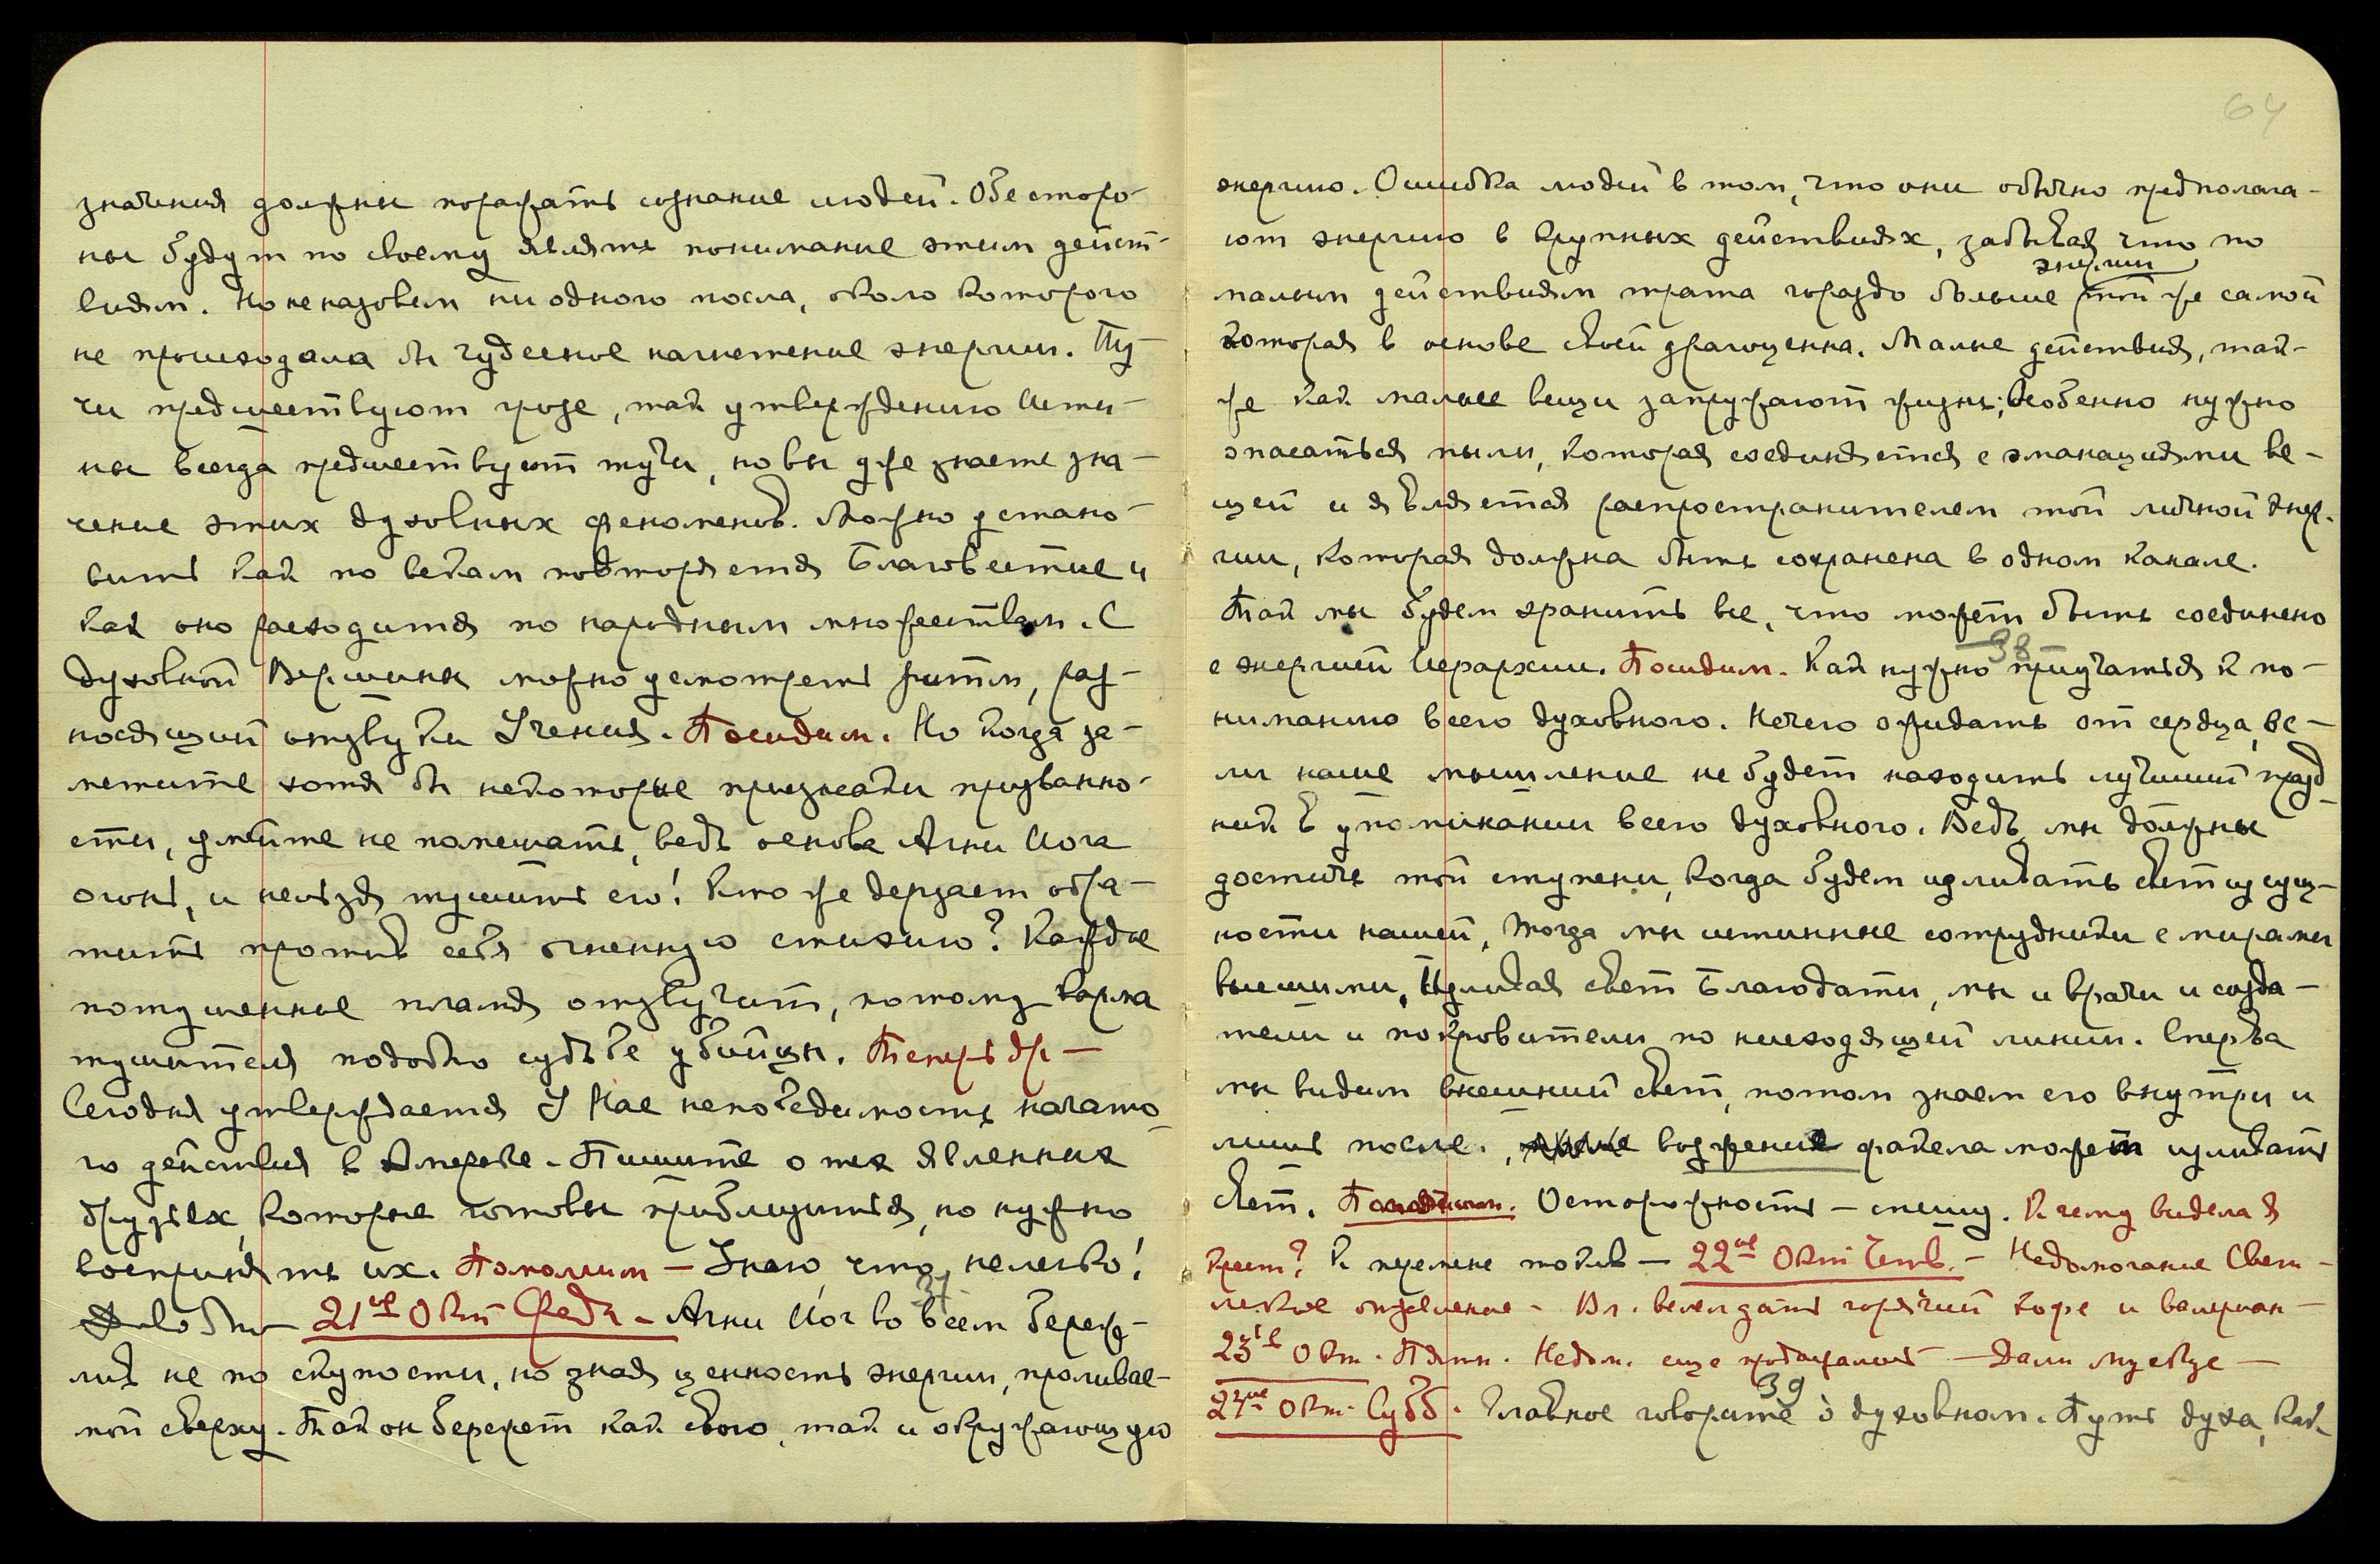 64
значения должны поражать сознание людей. Обе сторо-
ны будут по своему являть понимание этим дейст-
виям. Но не назовем ни одного посла, около которого
не происходила бы чудесное нагнетение энергии. Ту-
чи предшествуют грозе, так утверждению Исти-
ны всегда предшествуют тучи, но вы уже знаете зна-
чение этих духовных феноменов. Можно устано-
вить как по векам повторяется Благовестие и
как оно расходится по народным множествам. С
духовной Вершины можно усмотреть ритм, раз-
носящий отзвуки Учения. Посидим. Но когда за-
метите хотя бы некоторые признаки призванно-
сти, умейте не помешать, ведь основа Агни Йога
огонь, и нельзя тушить его! Кто же дерзает обра-
тить против себя огненную стихию? Каждое
потушенное пламя отзвучит, потому карма
тушителя подобно судьбе убийцы. Теперь др —
Сегодня утверждается У Нас непобедимость начато-
го действия в Америке. Пишите о тех явленных
друзьях, которые готовы приблизиться, но нужно
воспринять их. Помолчим — Знаю, что нелегко!
37
21ое Окт Среда — Агни Йог во всем береж-
лив не по скупости, но зная ценность энергии, проливае-
мой сверху. Так он бережет как свою, так и окружающую
энергию. Ошибка людей в том, что они обычно предполага-
ют энергию в крупных действиях, забывая что по
энергии
малым действиям трата гораздо больше той же самой
которая в основе своей драгоценна. Малые действия, так-
же как малые вещи запружают жизнь; Особенно нужно
опасаться пыли, которая соединяется с эманациями ве-
щей и является распространителем той личной энер-
гии, которая должна быть сохранена в одном канале.
Так мы будем хранить все, что может быть соединено
38
с энергией Иерархии. Посидим. Как нужно приучаться к по-
ниманию всего духовного. Нечего ожидать от сердца, ес-
ли наше мышление не будет находить лучший празд-
ник в упоминании всего духовного. Ведь мы должны
достичь той ступени, когда будем изливать свет из сущ-
ности нашей, тогда мы истинные сотрудники с мирами
высшими, Изливая свет Благодати, мы и врачи и созда-
тели и покровители по нисходящей линии. Сперва
мы видим внешний свет, потом знаем его внутри и
лишь после, возжения факела может изливать
свет. Осторожность — спешу. К чему видела я
крест? К перемене токов — 22ое Окт Четв. — Недомогание Свет-
легкое отделение — Вл. велел дать горячий кофе и валериан —
23ье Окт. Пятн. Недом. еще продолжалось — Дали музыку —
39
24ое Окт. Субб. Главное говорите о духовном. Путь духа, как